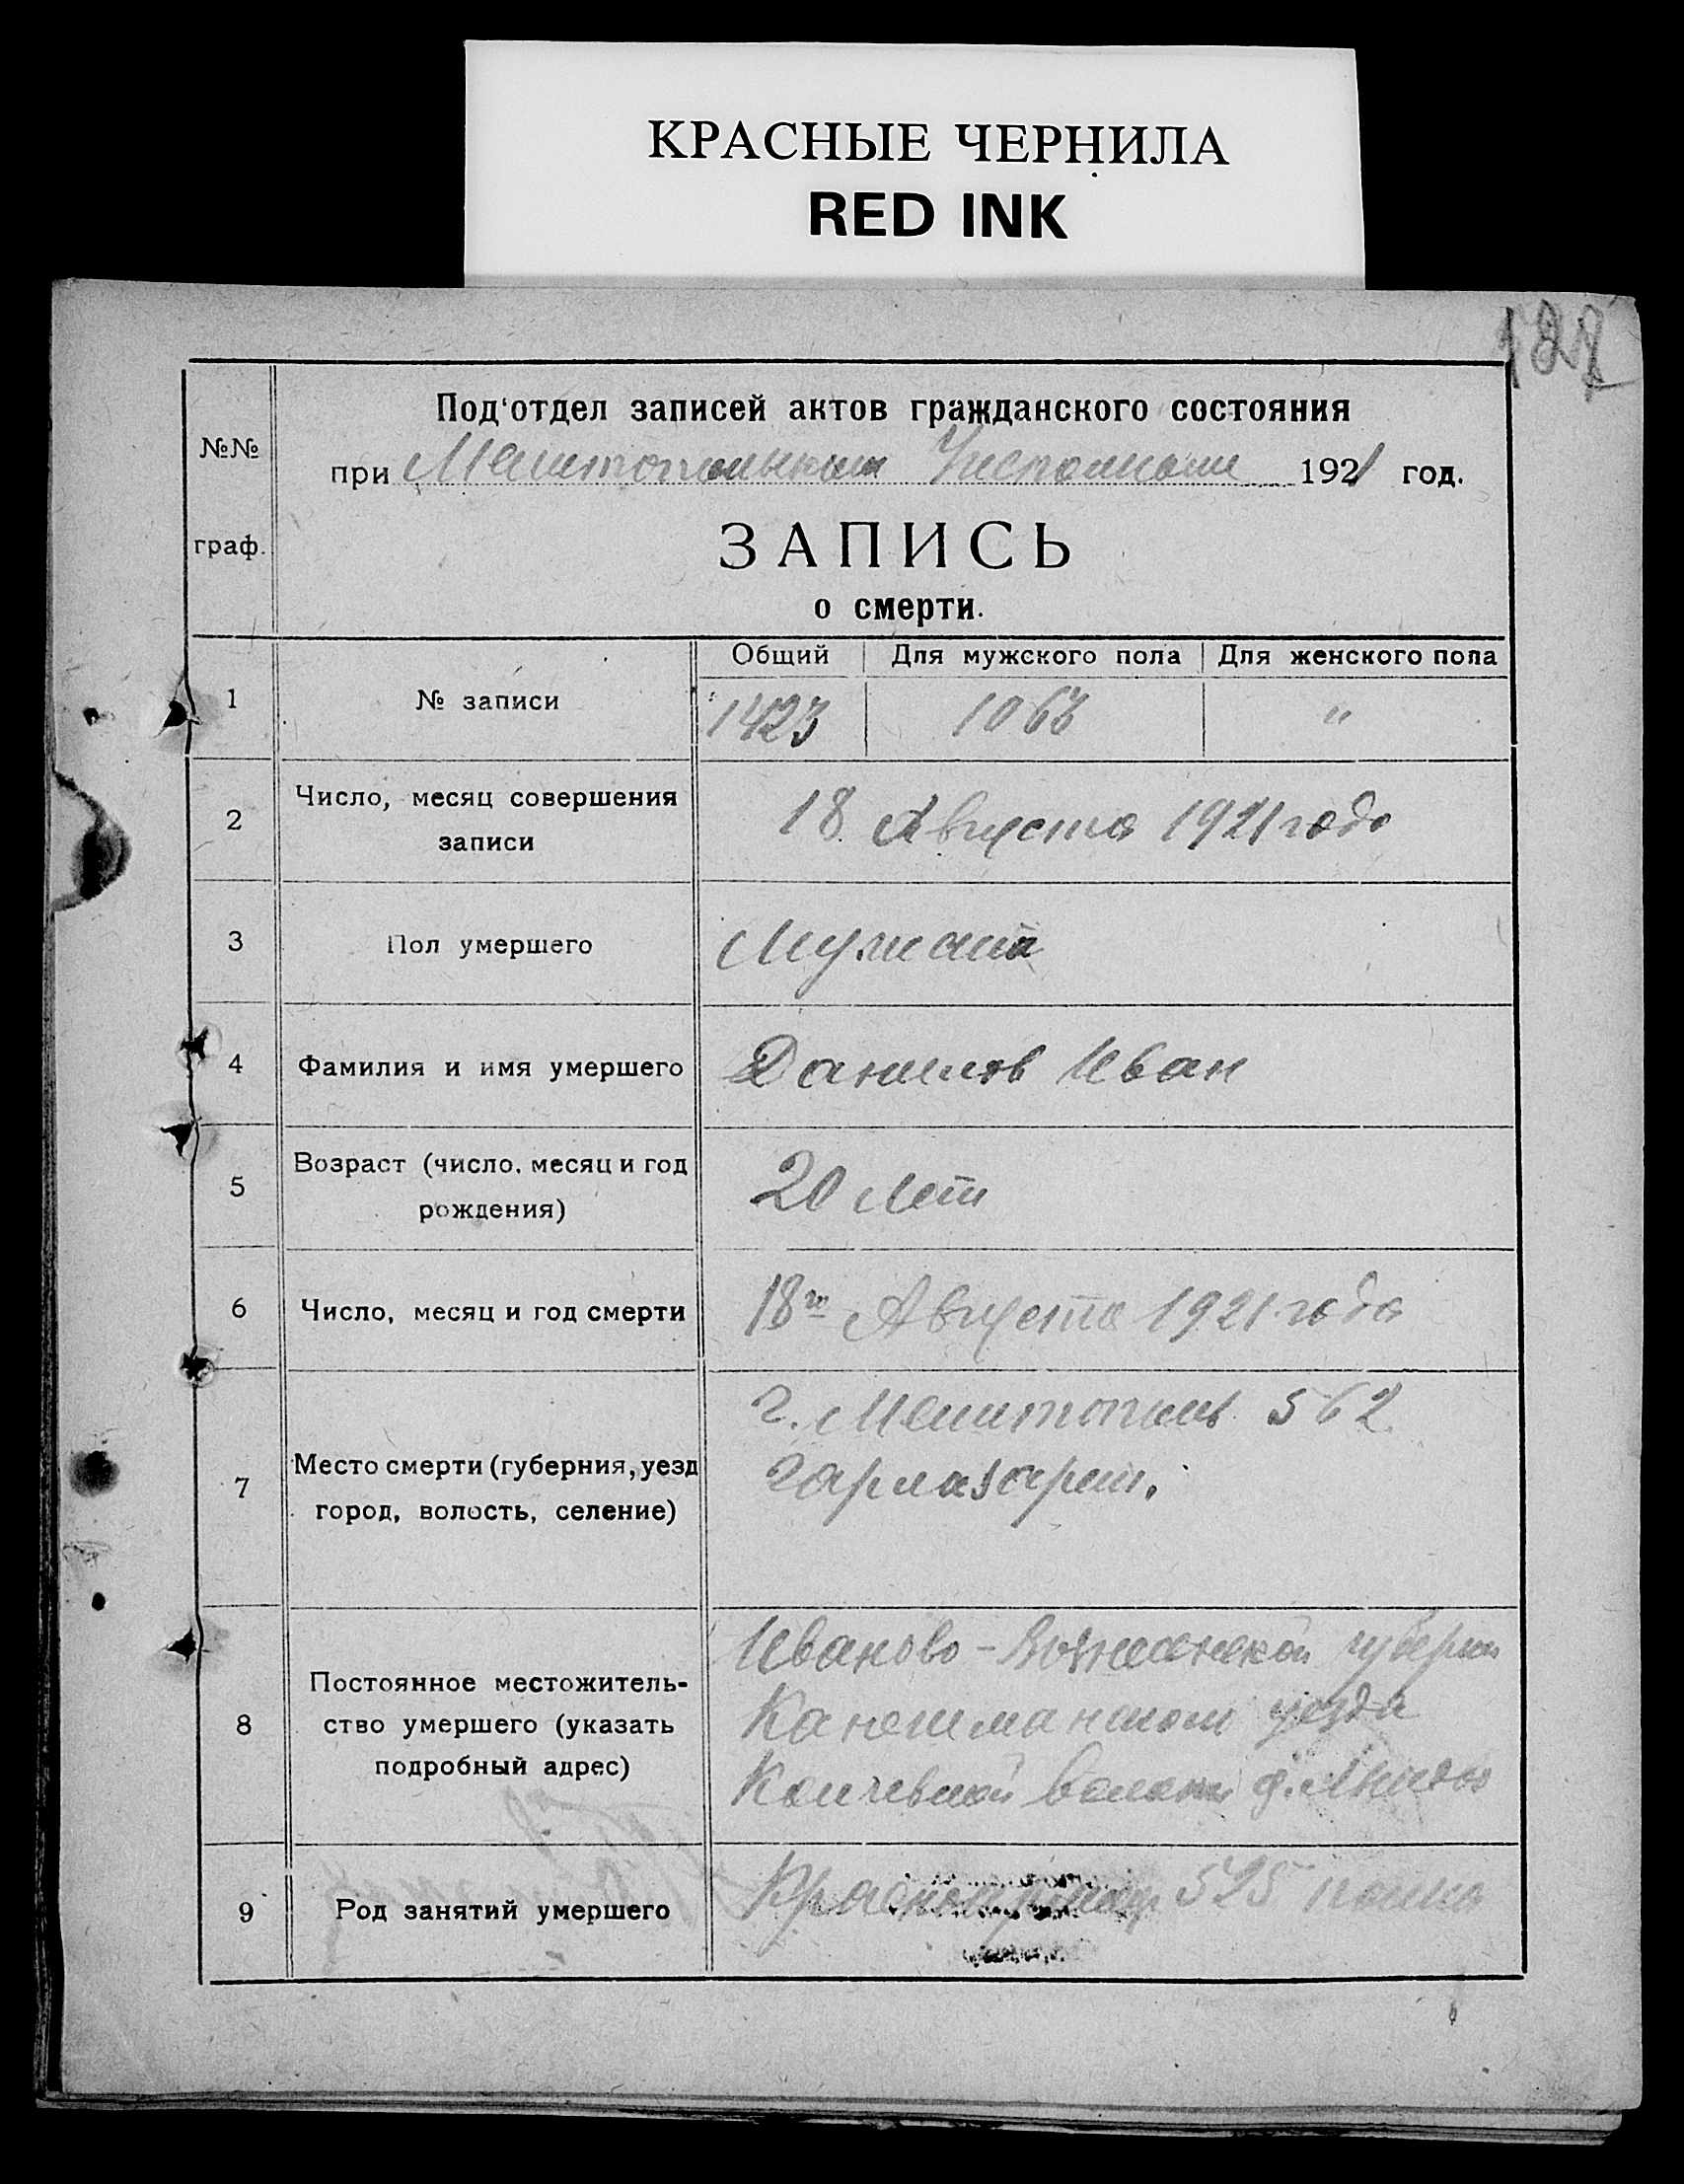 КРАСНЫЕ ЧЕРНИЛА
RED INK
Под'отдел записей актов гражданского состояния
№№
при Мелитопольском Исполкоме 1921 год.
ЗАПИСЬ
граф.
о смерти.
Общий Для мужского пола Для женского пола
1 № записи 1423 1063 "
2 Число, месяц совершения
записи
18 Августа 1921 года
3 Пол умершего
4 Фамилия и имя умершего Данилов Иван
5 Возраст (число, месяц и год
рождения)
20 лет
6 Число, месяц и год смерти 18го Августа 1921 года
7 Место смерти (губерния, уезд
город, волость, селение)
г. Мелитополь 562
8 Постоянное местожитель-
ство умершего (указать
подробный адрес)
Иваново-Вознесенской губерн
уезда
волости д.
9 Род занятий умершего Красноармеец 525 полка